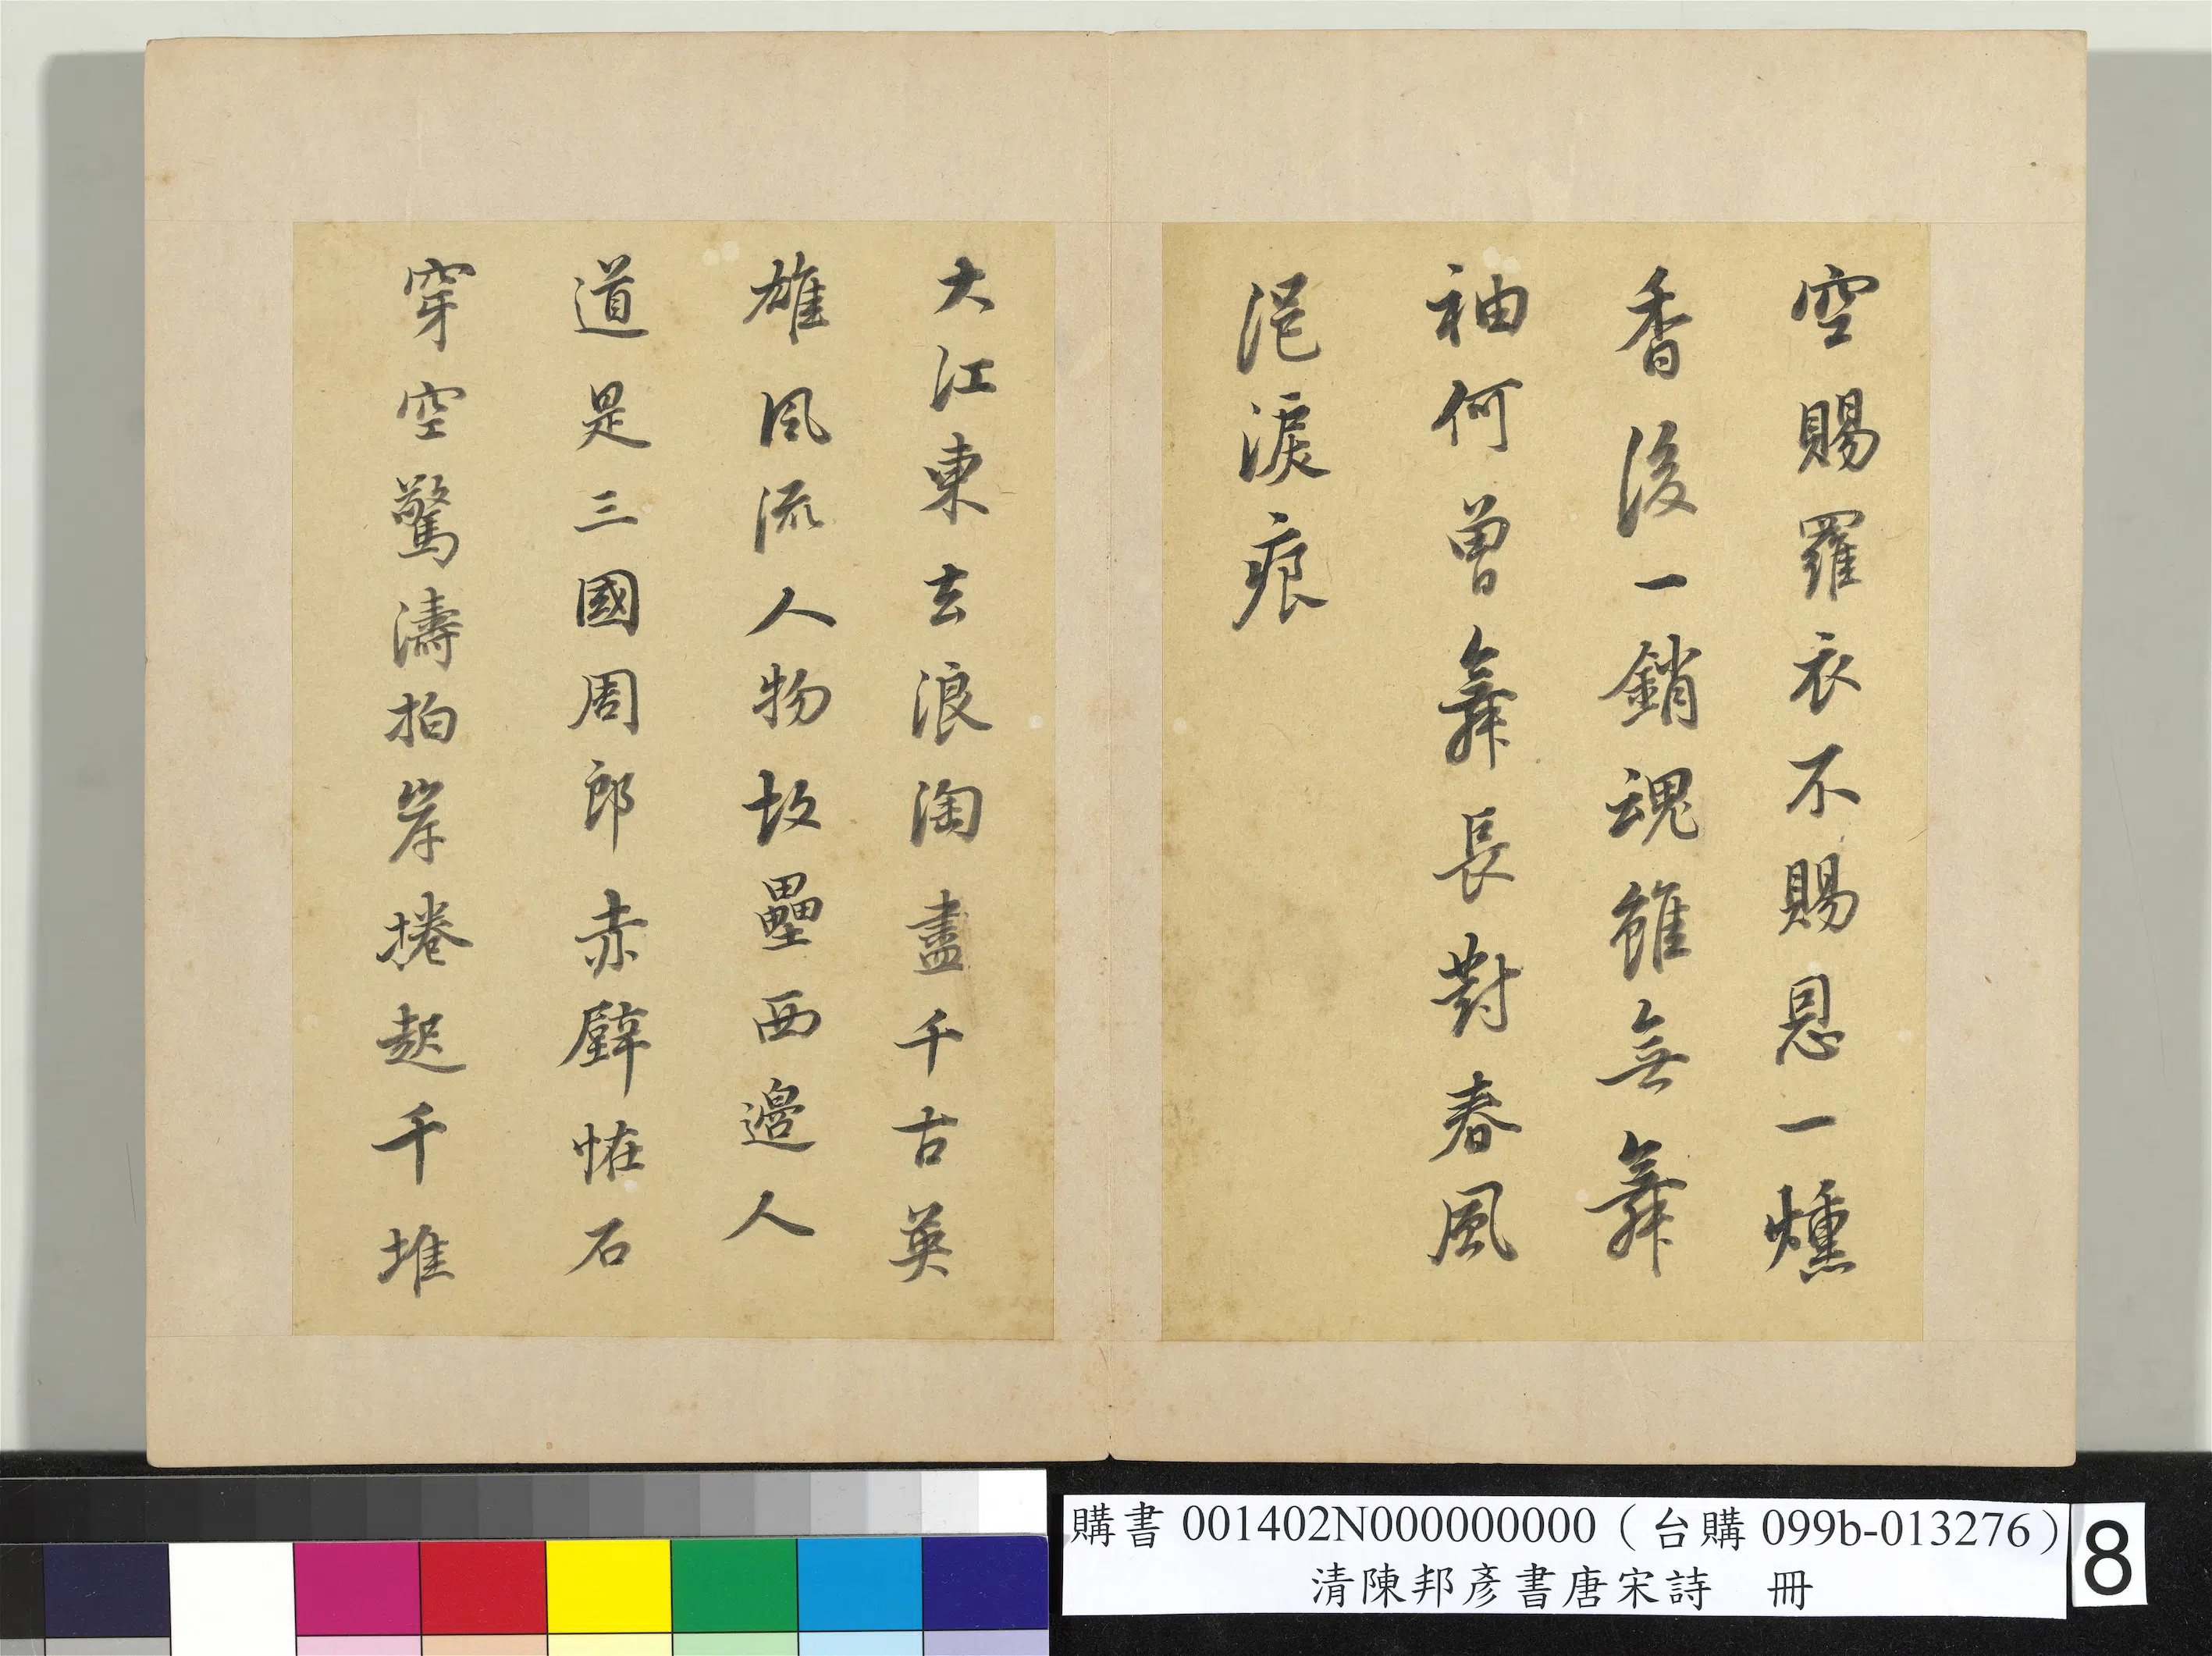 空賜羅衣不賜恩一燻
香後一銷魂雖無舞
袖何曾舞長對春風
浥淚痕
大江東去浪淘盡千古英
雄風流人物故壘西邊人
道是三國周郎赤壁恠石
穿空驚濤拍岸捲起千堆
購書 001402N000000000(台購 099b-013276)
清陳邦彥書唐宋詩 冊
8